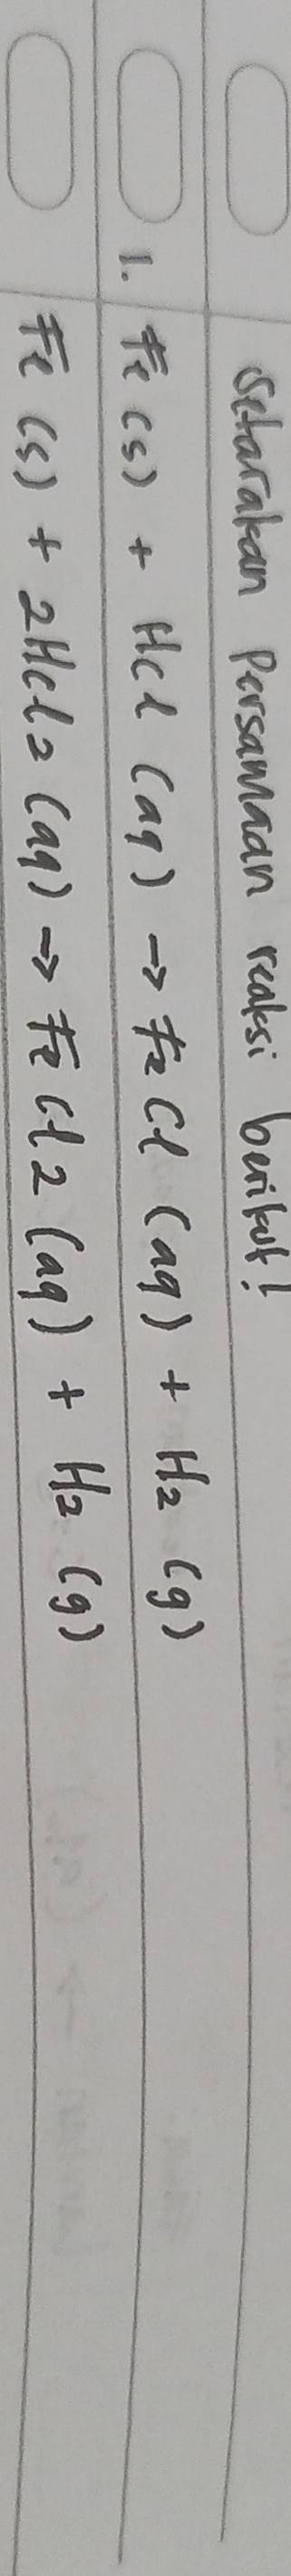 Setarakan Persamaan reaksi berikut!
1. Fe (s) + HCl (aq) → FeCl (aq) + H2 (g)
Fe (s) + 2HCl2 (aq) → FeCl2 (aq) + H2 (g)